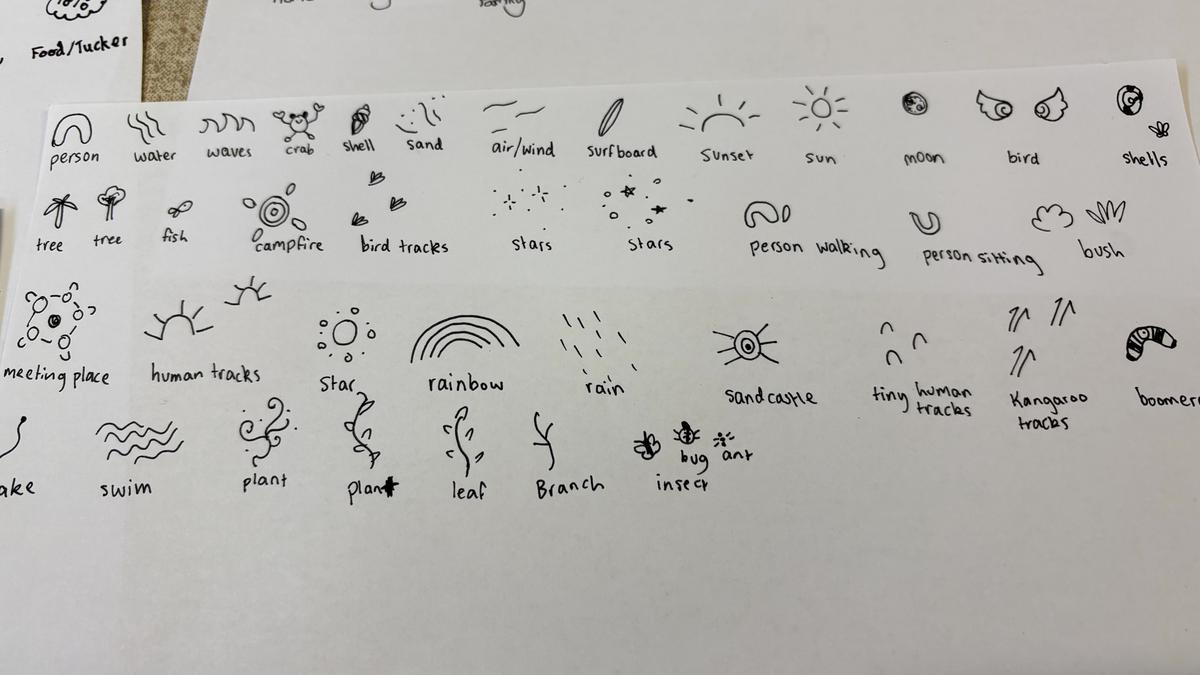 Food/Tucker
person water waves crab shell sand air/wind surfboard sunset sun moon bird shells
tree tree fish campfire bird tracks stars stars person walking person sitting bush
meeting place human tracks star rainbow rain sandcastle tiny human tracks Kangaroo tracks boomer
ake swim plant plant leaf Branch insect bug ant